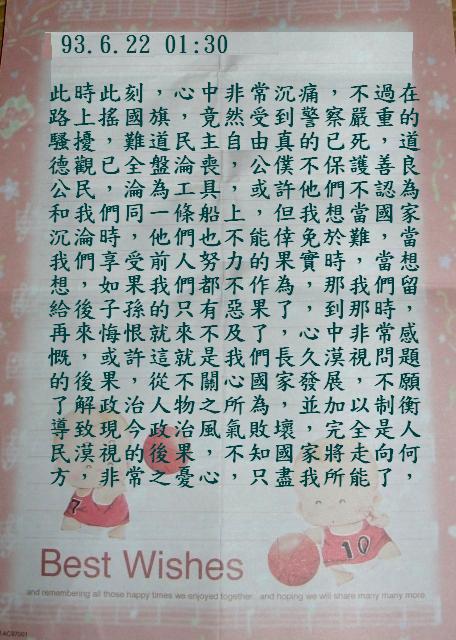 93.6.22 01:30
此時此刻，心中非常沉痛，不過在
路上搖國旗，竟然受到警察嚴重的
騷擾，難道民主自由真的已死，道
德觀已全盤淪喪，公僕不保護善良
公民，淪為工具，或許他們不認為
和我們同一條船上，但我想當國家
沉淪時，他們也不能倖免於難，當
我們享受前人努力的果實時，當想
想，如果我們都不作為，那我們留
給後子孫的只有惡果了，到那時，
再來悔恨就來不及了，心中非常感
慨，或許這就是我們長久漠視問題
的後果，從不關心國家發展，不願
了解政治人物之所為，並加以制衡
導致現今政治風氣敗壞，完全是人
民漠視的後果，不知國家將走向何
方，非常之憂心，只盡我所能了，
7
10
Best Wishes
and remembering all those happy times we enjoyed together and hoping we will share many many more